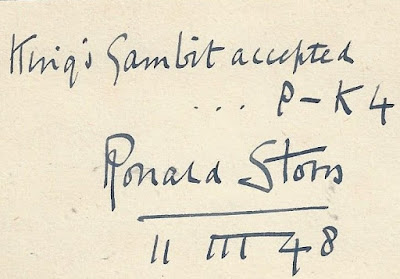 King's Gambit accepted
... P-K4
Ronald Storrs
11 III 48